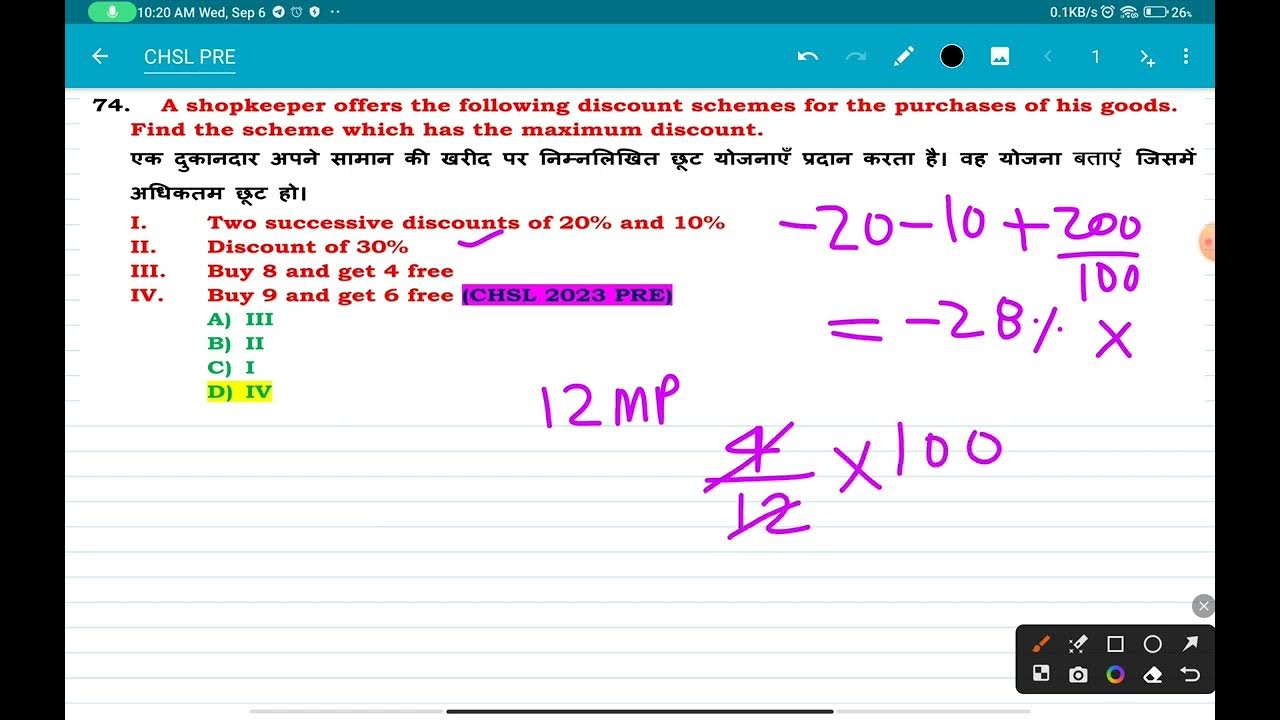 10:20 AM Wed, Sep 6
0.1KB/s
26%
CHSL PRE
1
74. A shopkeeper offers the following discount schemes for the purchases of his goods.
Find the scheme which has the maximum discount.
एक दुकानदार अपने सामान की खरीद पर निम्नलिखित छूट योजनाएँ प्रदान करता है। वह योजना बताएं जिसमें
अधिकतम छूट हो।
I. Two successive discounts of 20% and 10%
II. Discount of 30%
III. Buy 8 and get 4 free
IV. Buy 9 and get 6 free (CHSL 2023 PRE)
A) III
B) II
C) I
D) IV
-20-10+200
100
= -28% X
12 MP
4
12
X 100